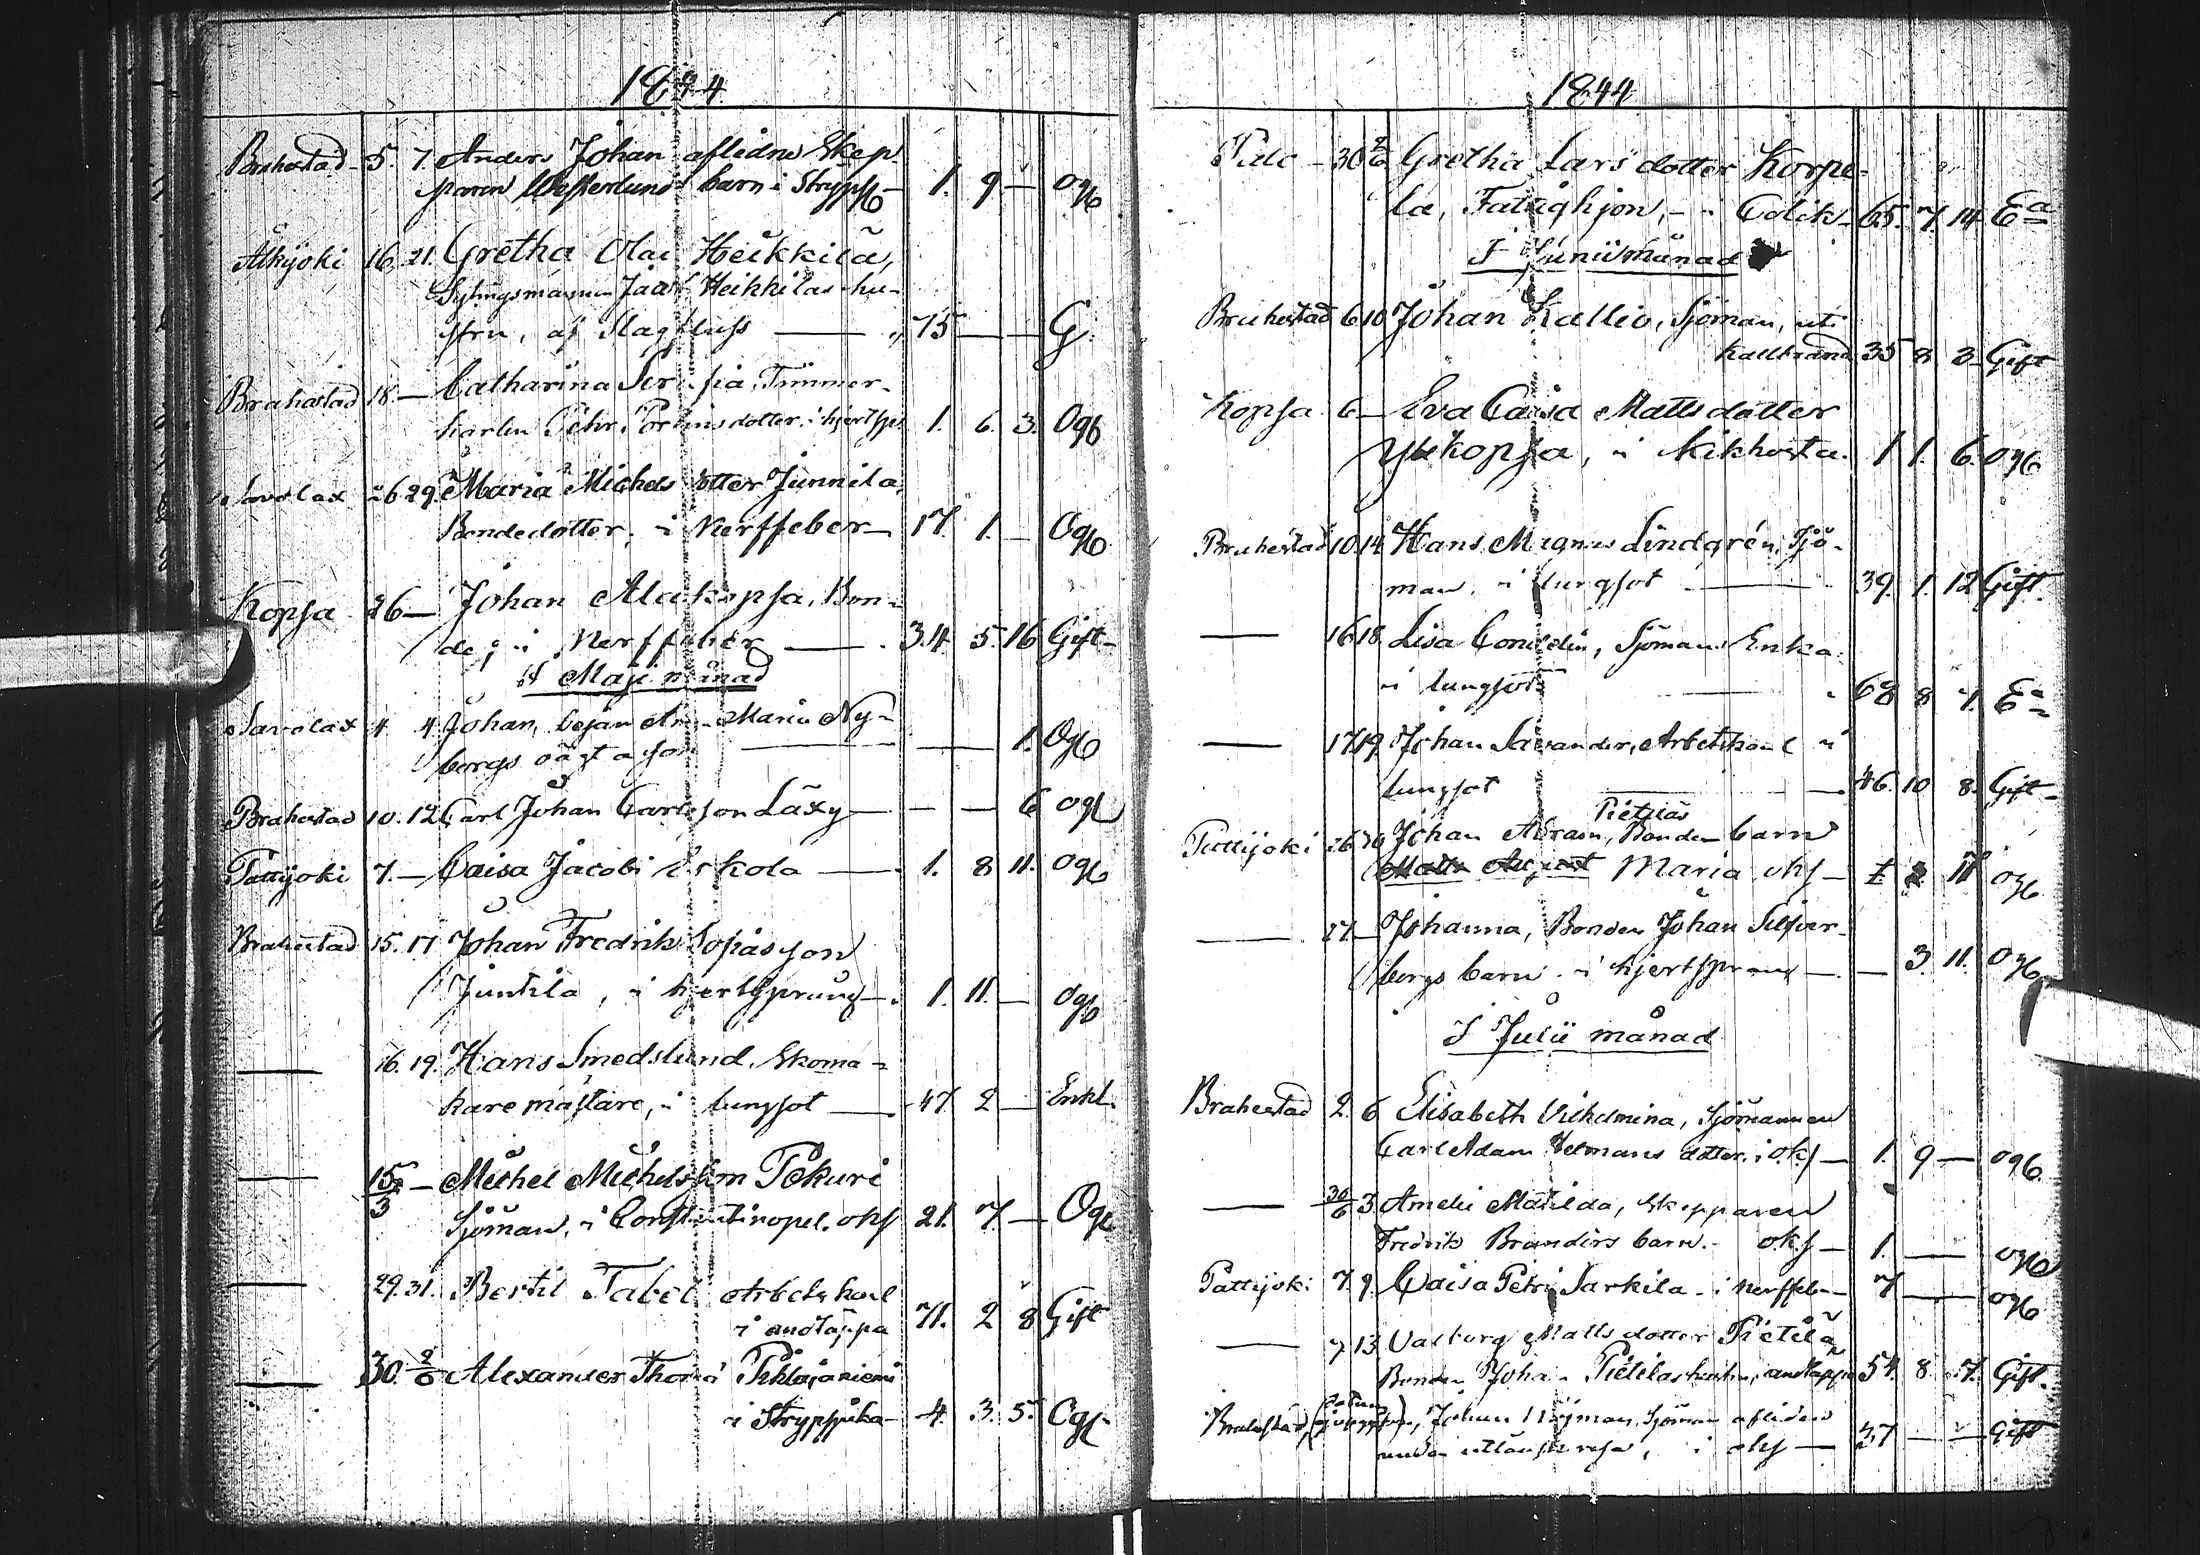 1844
Brahestad 5. 7. Anders Johan aflidne Skep-
paren Westerlunds barn i Strypsj. 1. 9 — Ogft
16. 21. Gretha Olai Heikkilä,
Heikkilas hu-
stru, af Slagfluss — 75 — — G
Brahestad 18. — Catharina Timmer-
karlen Pehr dotter i hjertspr. 1. 6. 3. Ogft
Savolax 26. 29. Maria Michelsdotter Junnila,
Bondedotter, i Nerffeber — 17. 1. — Ogft
Kopsa 26 — Johan Alakopsa, Bon-
de, i Nerffeber — 34. 5. 16 Gift
I Maji månad
Savolax 4 4 Johan, Maria Ny-
bergs oägta son — — — 1. Ogft
Brahestad 10. 12 Carl Johan Carlsson Läxy — — — 6 Ogft
Pattijoki 7. — Caisa Jacobi Eskola — 1. 8 11. Ogft
Brahestad 15. 17 Johan Fredrik
Juntila, i hjertsprång — 1. 11. — Ogft
— 16. 19. Hans Smedslund, Skoma-
kare mästare, i lungsot — 47 2 — Enkl.
— 15/3 — Michel Michelsson Pekuri
Sjöman, i Constantinopel, okj 21. 7. — Ogft
— 29. 31. Bertil Tabel Arbetskarl
i andtäppa 71. 2 8 Gift
— 30. 2/6 Alexander Thomæ
i Strypsjuka — 4. 3. 5. Ogft
1844
30 2/6 Gretha Larsdotter Korpe-
la, Fattighjon, i Colik — 65. 7. 14 Ea
I Junii månad
Brahestad 6 10 Johan Kallio, Sjöman, uti
kallbrand 35 8 3 Gift
Kopsa 6 — Eva Caisa Mattsdotter
Ylikopsa, i kikhosta. 1 1. 6. Ogft
Brahestad 10 14 Hans Magnus Lindgrén, Sjö-
man, i lungsot — 39. 1. 12 Gift.
— 16 18. Lisa Sjömans Enka
i lungsot — 68 8 1. Ea
— 17 19. Johan Savander, Arbetskarl i
lungsot — 46. 10 8. Gift
Pietilas
Pattijoki 26 30 Johan Abram, Bonden barn
Maria okj — Ogft
— 27 — Johanna, Bonden Johan Silfver-
bergs barn i hjertsprång — — 3. 11. Ogft
I Julii månad
Brahestad 2. 6 Elisabeth Vilhelmina, Sjömannen
Carl Adam dotter i okj — 1. 9 — Ogft
— 30/6 3 Amelie Matilda, Skepparen
Fredrik Branders barn — okj — 1. — — Ogft
Pattijoki 7. 9. Caisa Petri Sarkila i nerffeb — 7 — — Ogft
— 7 13 Valborg Mattsdotter Pietilä
Bonden Johan Pietilas hustru, andtäppa 54. 8. 7. Gift.
Brahestad, Johan Sjöman afliden
under utländsk resa, i okj — 37 — — Gift